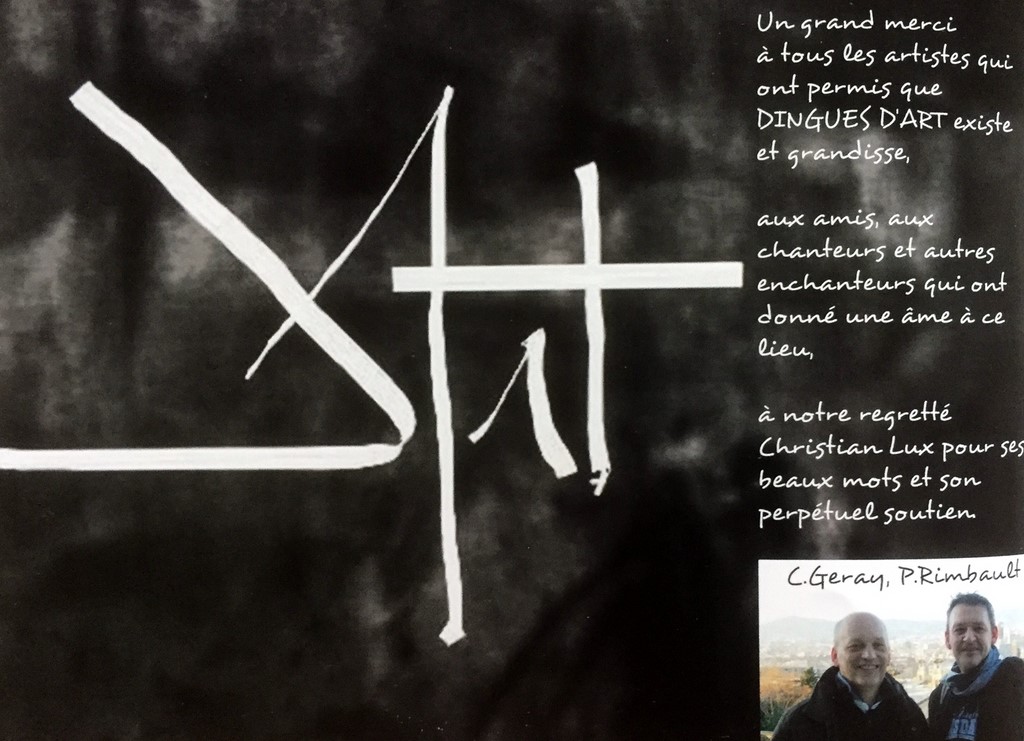 Un grand merci
à tous les artistes qui
ont permis que
DINGUES D'ART existe
et grandisse,
aux amis, aux
chanteurs et autres
enchanteurs qui ont
donné une âme à ce
lieu,
à notre regretté
Christian Lux pour ses
beaux mots et son
perpétuel soutien.
C.Geray, P.Rimbault